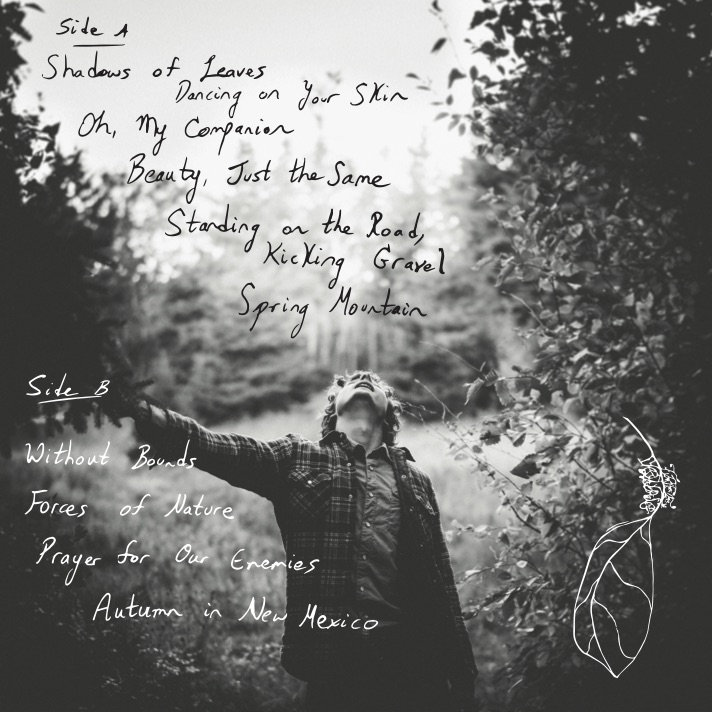 Side A
Shadows of Leaves
Dancing on Your Skin
Oh, My Companion
Beauty, Just the Same
Standing on the Road,
Kicking Gravel
Spring Mountain
Side B
Without Bounds
Forces of Nature
Prayer for Our Enemies
Autumn in New Mexico